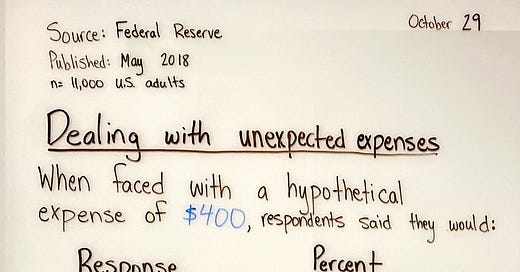 October 29
Source: Federal Reserve
Published: May 2018
n= 11,000 U.S. adults
Dealing with unexpected expenses
When faced with a hypothetical
expense of $400, respondents said they would:
Response Percent